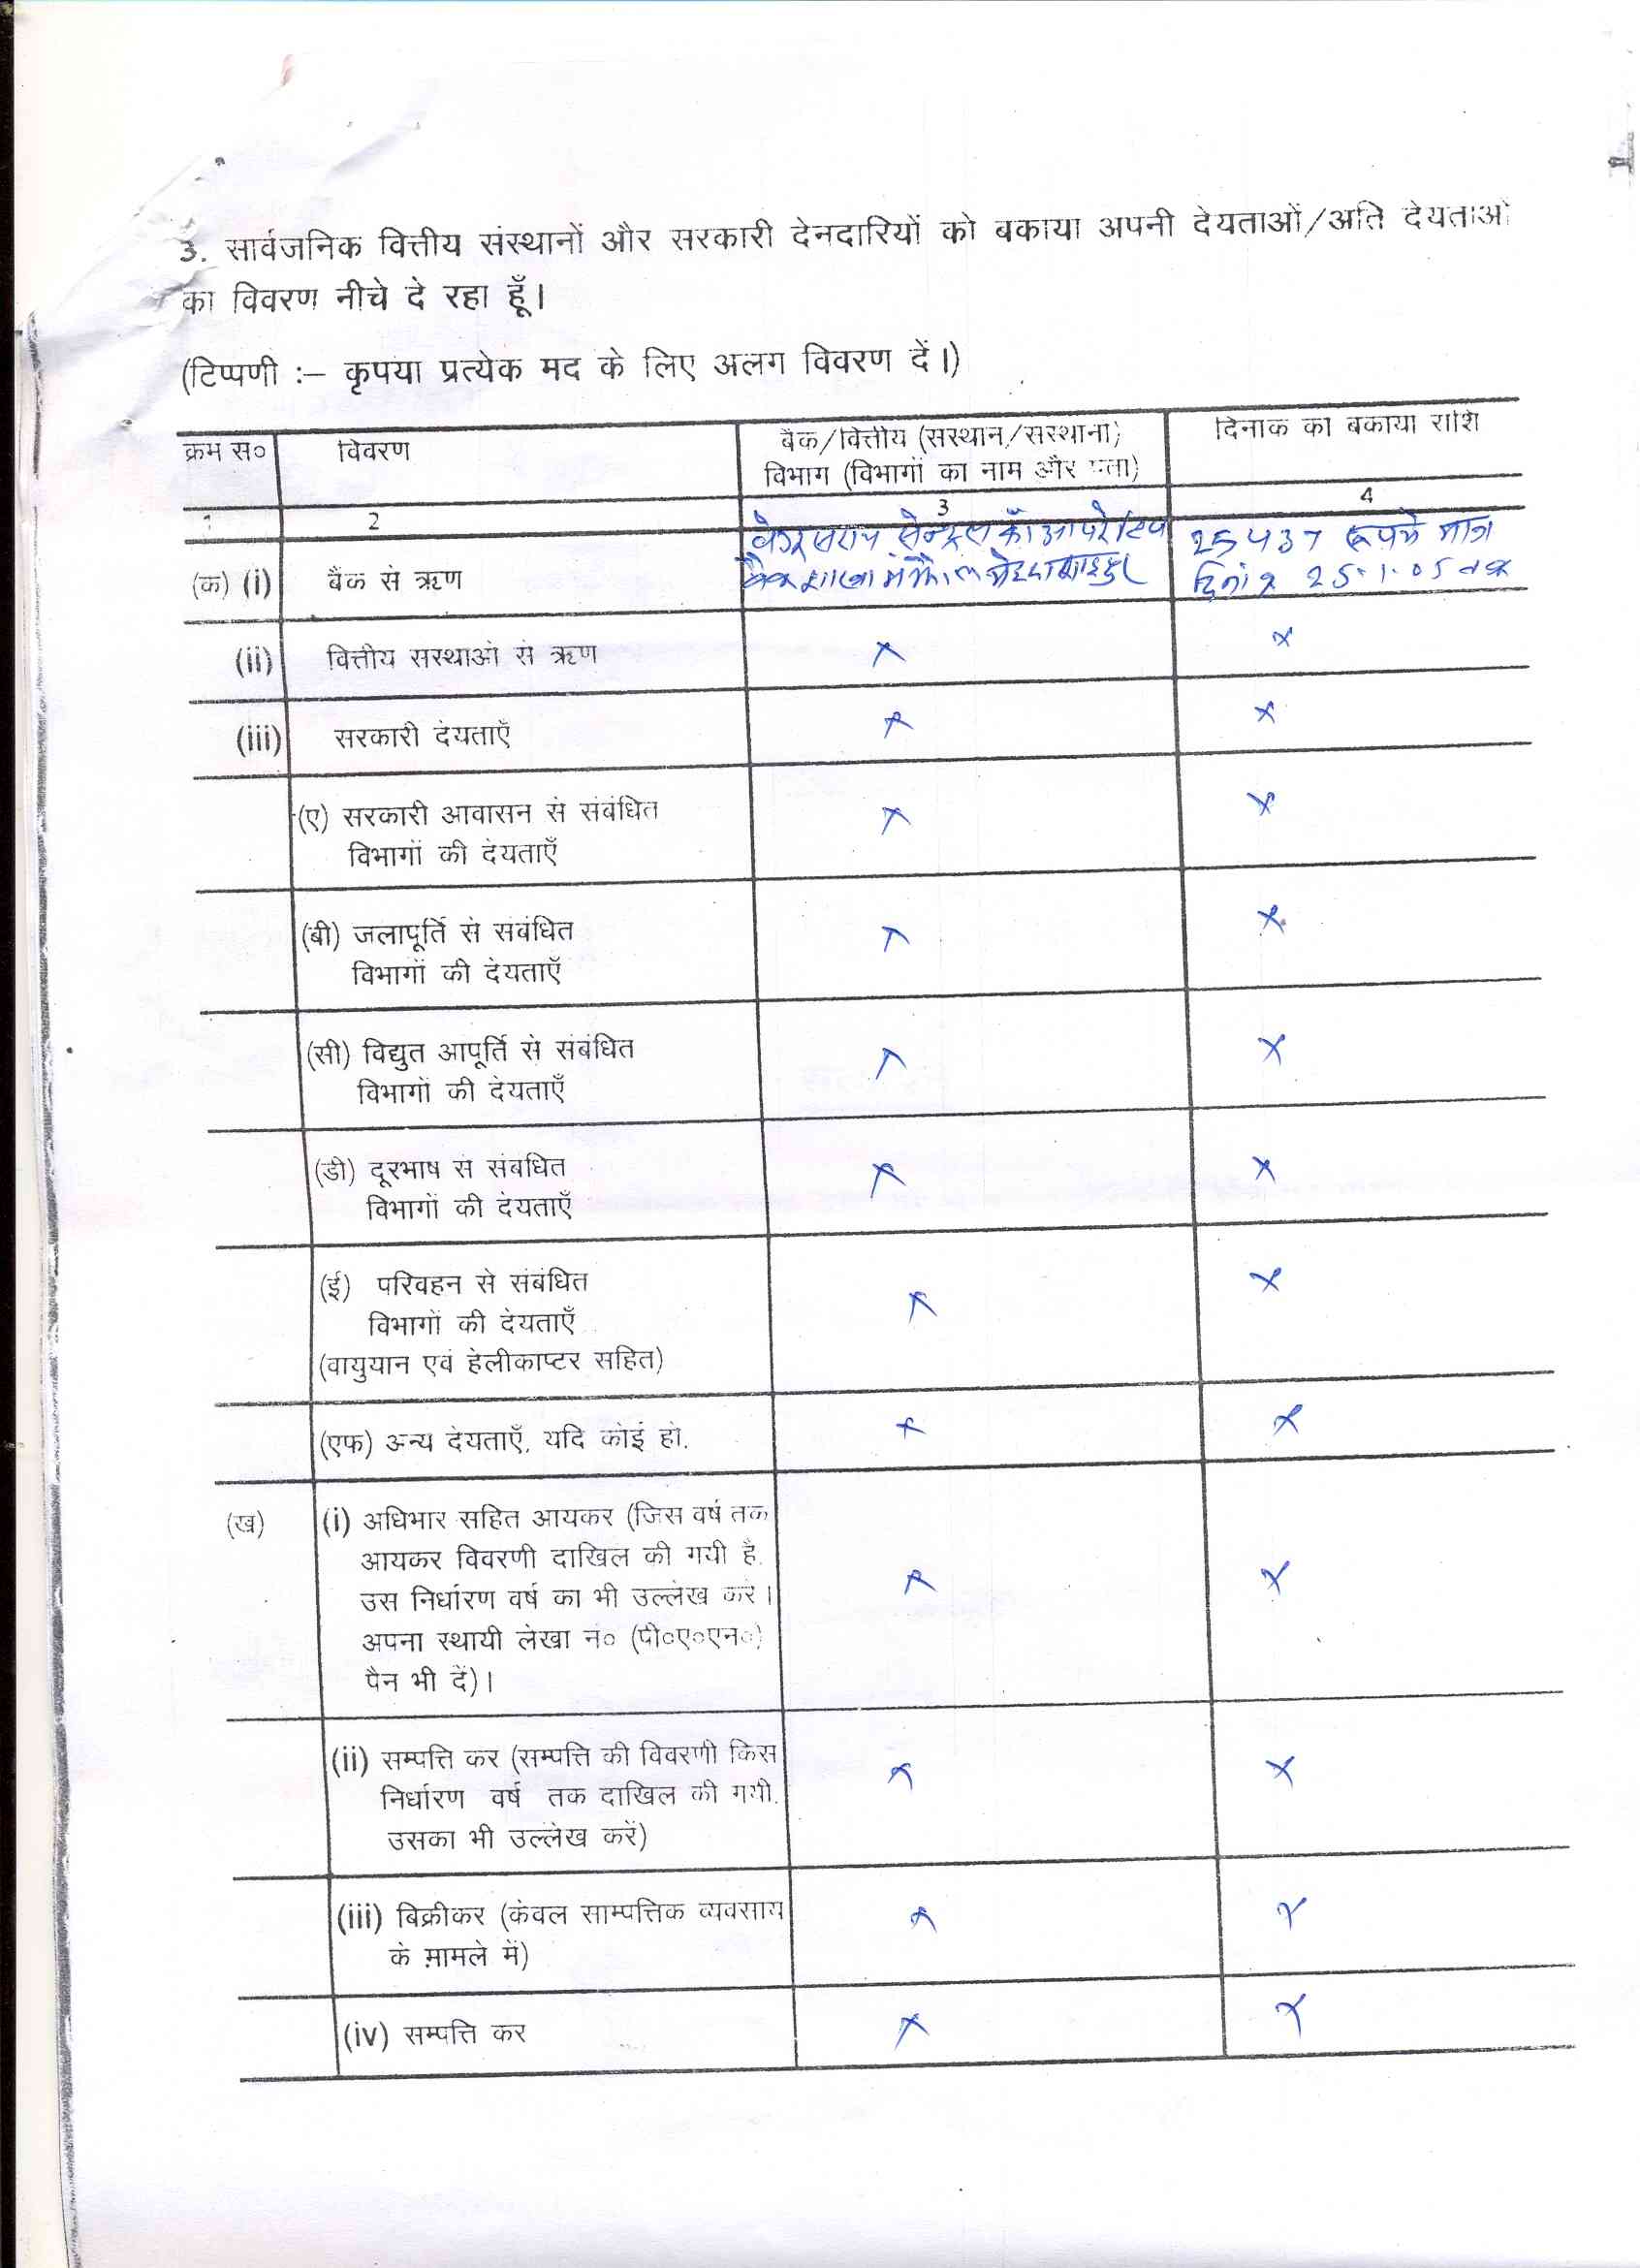 3. सार्वजनिक वित्तीय संस्थानों और सरकारी देनदारियों को बकाया अपनी देयताओं/अति देयताओं
का विवरण नीचे दे रहा हूँ।
(टिप्पणी :– कृपया प्रत्येक मद के लिए अलग विवरण दें।)
क्रम स० विवरण बैंक/वित्तीय (संस्थान/संस्थानों) दिनांक का बकाया राशि
विभाग (विभागों का नाम और पता)
1 2 3 4
बेगूसराय सेन्ट्रल कॉआपरेटिव 25437 रूपये मात्र
(क) (i) बैंक से ऋण बैंक शाखा दिनांक 25.1.05 तक
(ii) वित्तीय संस्थाओं से ऋण × ×
(iii) सरकारी देयताएँ × ×
(ए) सरकारी आवासन से संबंधित × ×
विभागों की देयताएँ
(बी) जलापूर्ति से संबंधित × ×
विभागों की देयताएँ
(सी) विद्युत आपूर्ति से संबंधित × ×
विभागों की देयताएँ
(डी) दूरभाष से संबंधित × ×
विभागों की देयताएँ
(ई) परिवहन से संबंधित × ×
विभागों की देयताएँ
(वायुयान एवं हेलीकाप्टर सहित)
(एफ) अन्य देयताएँ, यदि कोई हो. × ×
(ख) (i) अधिभार सहित आयकर (जिस वर्ष तक
आयकर विवरणी दाखिल की गयी है.
उस निर्धारण वर्ष का भी उल्लेख करें। × ×
अपना स्थायी लेखा नं० (पी०ए०एन०)
पैन भी दें)।
(ii) सम्पत्ति कर (सम्पत्ति की विवरणी किस × ×
निर्धारण वर्ष तक दाखिल की गयी.
उसका भी उल्लेख करें)
(iii) बिक्रीकर (केवल साम्पत्तिक व्यवसाय × ×
के मामले में)
(iv) सम्पत्ति कर × ×